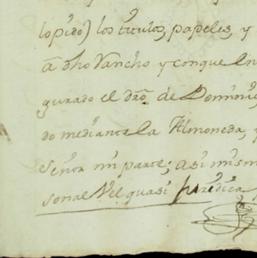 lo pido) los títulos, papeles, y
a dho Rancho y conque In
gurado el dro. de Dominio
do mediante la Almoneda, y
Señor mi parte; asi mism
sonal Vel quasi Juredica